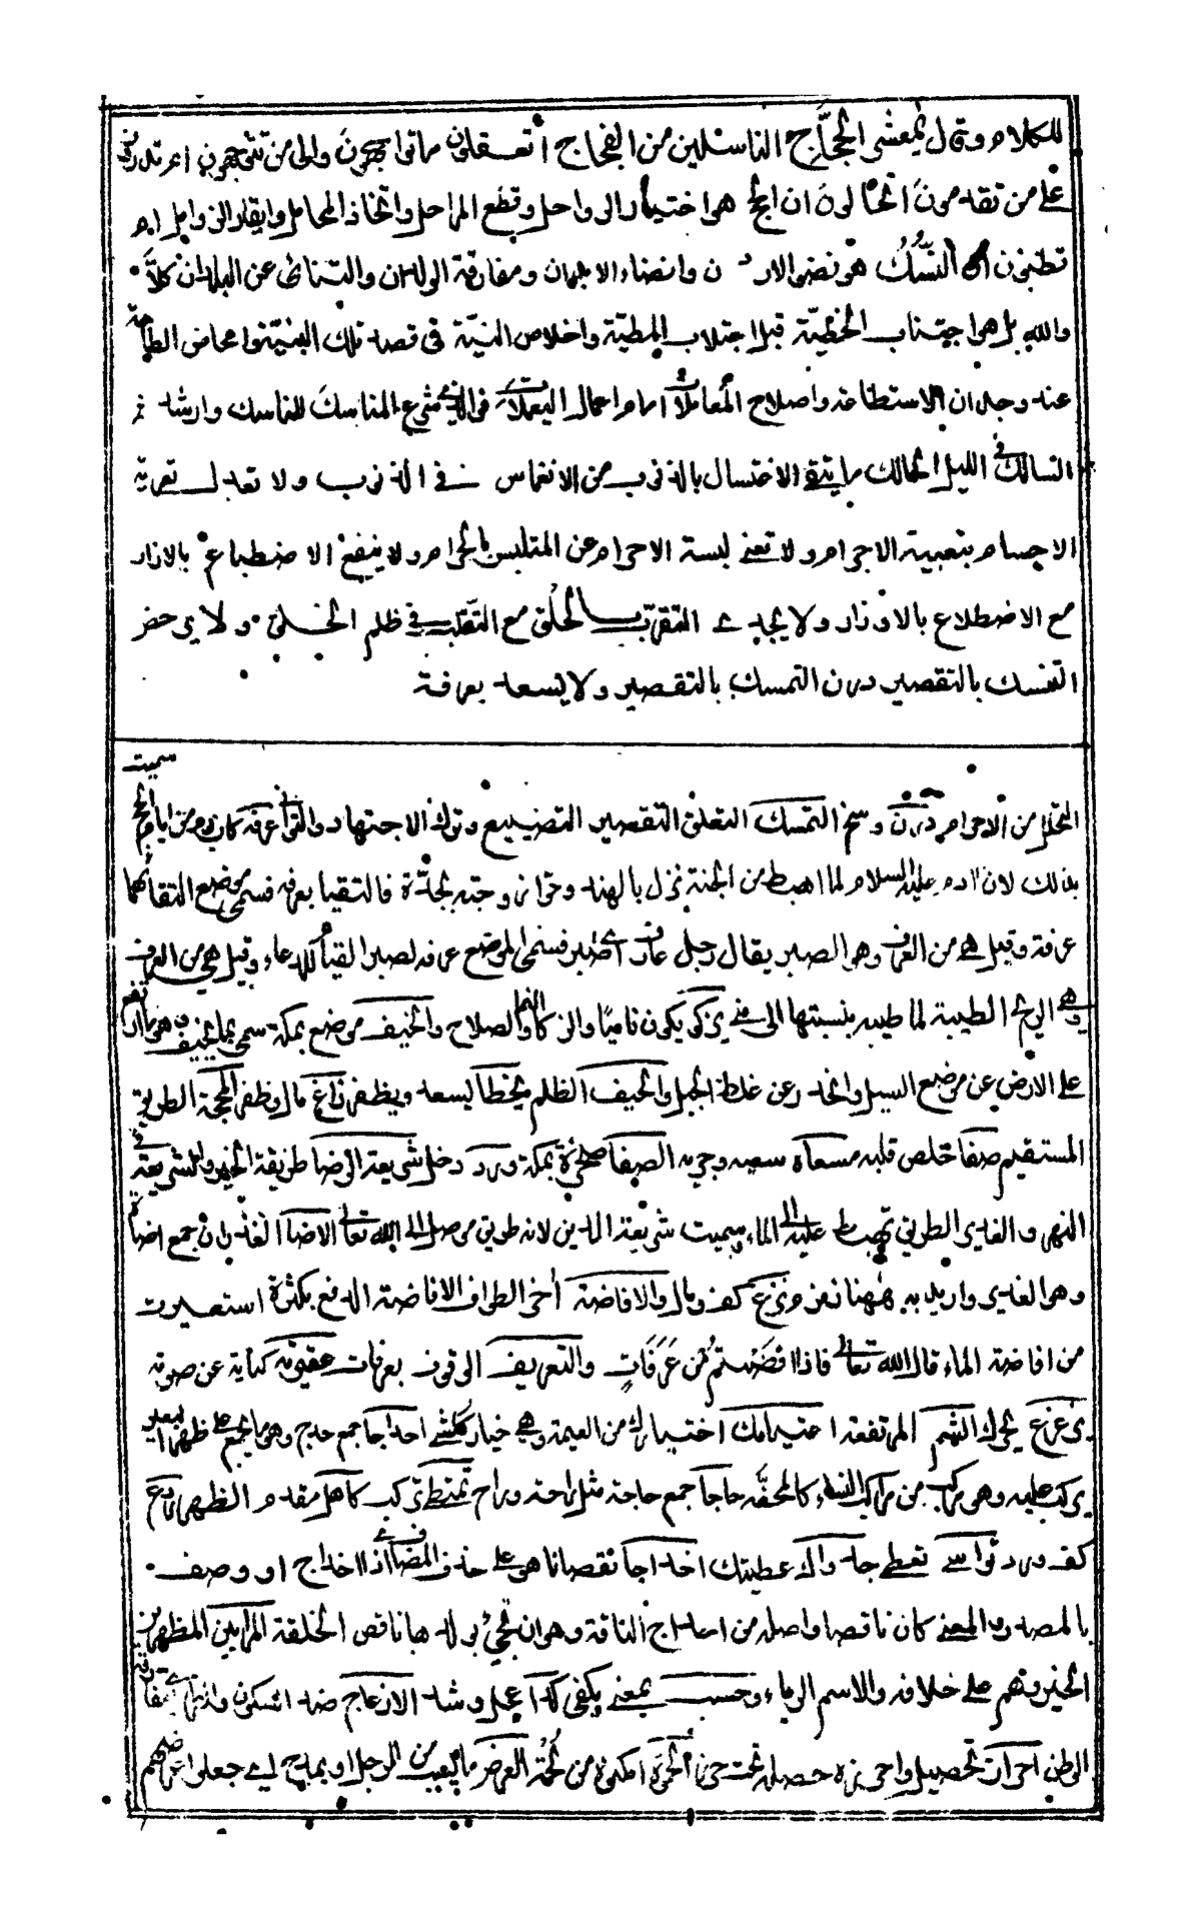 للكلام وقال يمعشر الحجاج الناسلين من الفجاج أتعقلون ما تواجهون والى من تتوجهون ام تدرون
على من تقدمون أتخالون ان الحج هو اختيار الرواحل وقطع المراحل واتخاذ المحامل وايقار الزوامل ام
تظنون ان النسك هو نضو الاردان وانضاء الابدان ومفارقة الولدان والتنائى عن البلدان كلا
والله بل هو اجتناب الخطيّة قبل اجتلاب المطيّة واخلاص النيّة فى قصد تلك البنيّة وامحاض الطاعة
عند وجدان الاستطاعة واصلاح المُعاملات امام اعمال اليعملات فوالذى شرع المناسك للناسك وارشد
السالك فى الليل الحالك ما ينقى الاغتسال بالذنوب من الانغماس فى الذنوب ولا تعدل تعرية
الاجسام بتعبية الاجرام ولا تغنى لبسة الاحرام عن المتلبس بالحرام ولا ينفع الاضطباع بالازار
مع الاضطلاع بالاوزار ولا يجدى التقرّب بالحلق مع التقلّب فى ظلم الخلق ولا يرحض
التنسك بالتقصير درن التمسك بالتقصير ولا يسعد بعرفة
سميت
التحلل من الاحرام درن وسخ التمسك التعلق التقصير التضييع وترك الاجتهاد والتوانى عرفة كان يوم من ايام الحج
بذلك لان آدم عليه السلام لما اهبط من الجنة نزل بالهند وحوا زوجته بجدّة فالتقيا بعرفه فسمى موضع التقائهما
عرفة وقيل هى من العرف وهو الصبر يقال رجل عارف اى صابر فسمى الموضع عرفه لصبر القيام للدعاء وقيل هى من العرف
وهى الريح الطيبة لما طيبه بنسبتها الى منى يزكو يكون ناميًا والزكاء النماء والصلاح والخيف موضع بمكة سمى بما الخيف وهو ما ارتفع
على الارض عن موضع السيل وانحدر عن غلظ الجبل والحيف الظلم يخطا ليسعد ويظفر زاغ مال وظفر المحجة الطريق
المستقيم صفا خلص قلبه مسعاه سعيه وجريه الصفا صخرة بمكة ورد دخل شريعة الرضا طريقة الخير والشريعة فى
النهر والغدير الطريق تهبط عليه الى الماء وسميت شريعة الدين لانه طريق موصل الى الله تعالى الاضا الغدران جمع اضاة
وهو الغدير واريد به ههنا نفر ونزع كف ومال والافاضة أخر الطواف الافاضة الدفع بكثرة استعيرت
من افاضة الماء قال الله تعالى فاذا افضتم من عَرَفَاتٍ والتعريف الوقوف بعرفات عقيرته كناية عن صوته
يزعزع يحرك الشم المرتفعة اعتيامك اختيارك من العيمة وهى خيار كل شئ احداجا جمع حدج وهو ما يجمع على ظهر البعير
يركب عليه وهو مركب من مراكب النساء كالمحفّه حاجا جمع حاجة مثل راحة وراح تمتطى تركب كاهل مقدم الظهر ردع
كف وردّ تواسى تعطى جدواك عطيتك اخداجا نقصانا هو على حذف المضاف اى ذا اخداج او وصف
بالمصدر والمعنى كان ناقصا واصله من اخداج الناقة وهو ان تجئ بولدها ناقص الخلقة المرايين المظهرين
الخير وهم على خلافه والاسم الرياء وحسب بمعنى يكفى كدّا عمل وشد الازعاج ضد السكون وانزعاج مفارقة
الوطن احراز تحصيل واحرزه حصله تحت حرز الحرمة امكنوا من لحمة العرض ما يعيب من الرجل او يمدح اى جعلوا اعراضهم